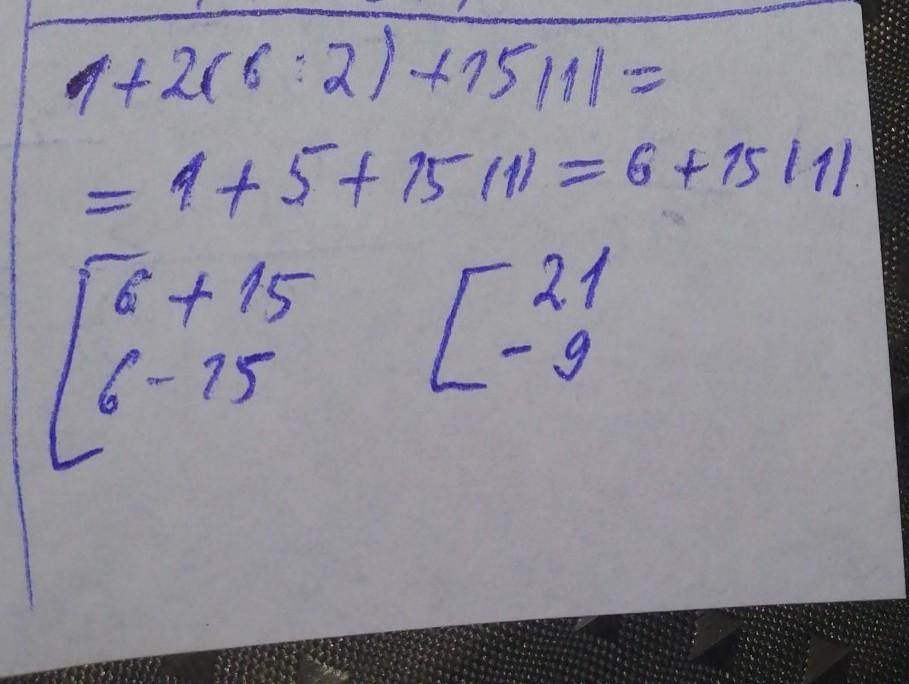 1+2(6:2)+15|1|=
=1+5+15|1|=6+15|1|
[6+15 [21
6-15 -9